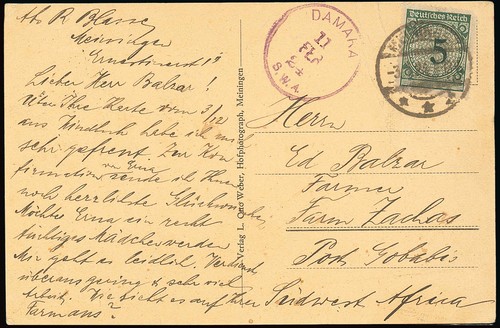 Abs R Blasse
Meiningen
Ernestinerstr 15
Lieber Herr Balzar!
Über Ihre Karte vom 3/12
aus Windhuk habe ich mich
sehr gefreut. Zur Kon
von Erna
firmation sende ich Ihnen
noch herzlichste Glückwünsche
Möchte Erna ein recht
tüchtiges Mädchen werden
Mir geht es leidlich. Verdienst
überaus gering & sehr viel
Arbeit. Wie sieht es auf Ihrer
Farm aus?
Verlag L. Otto Weber, Hofphotograph, Meiningen
DAMARA
11
FEB
24
S.W.A.
Deutsches Reich
5
Herrn
Ed Balzar
Farmer
Farm Zachas
Post Gobabis
Südwest Africa